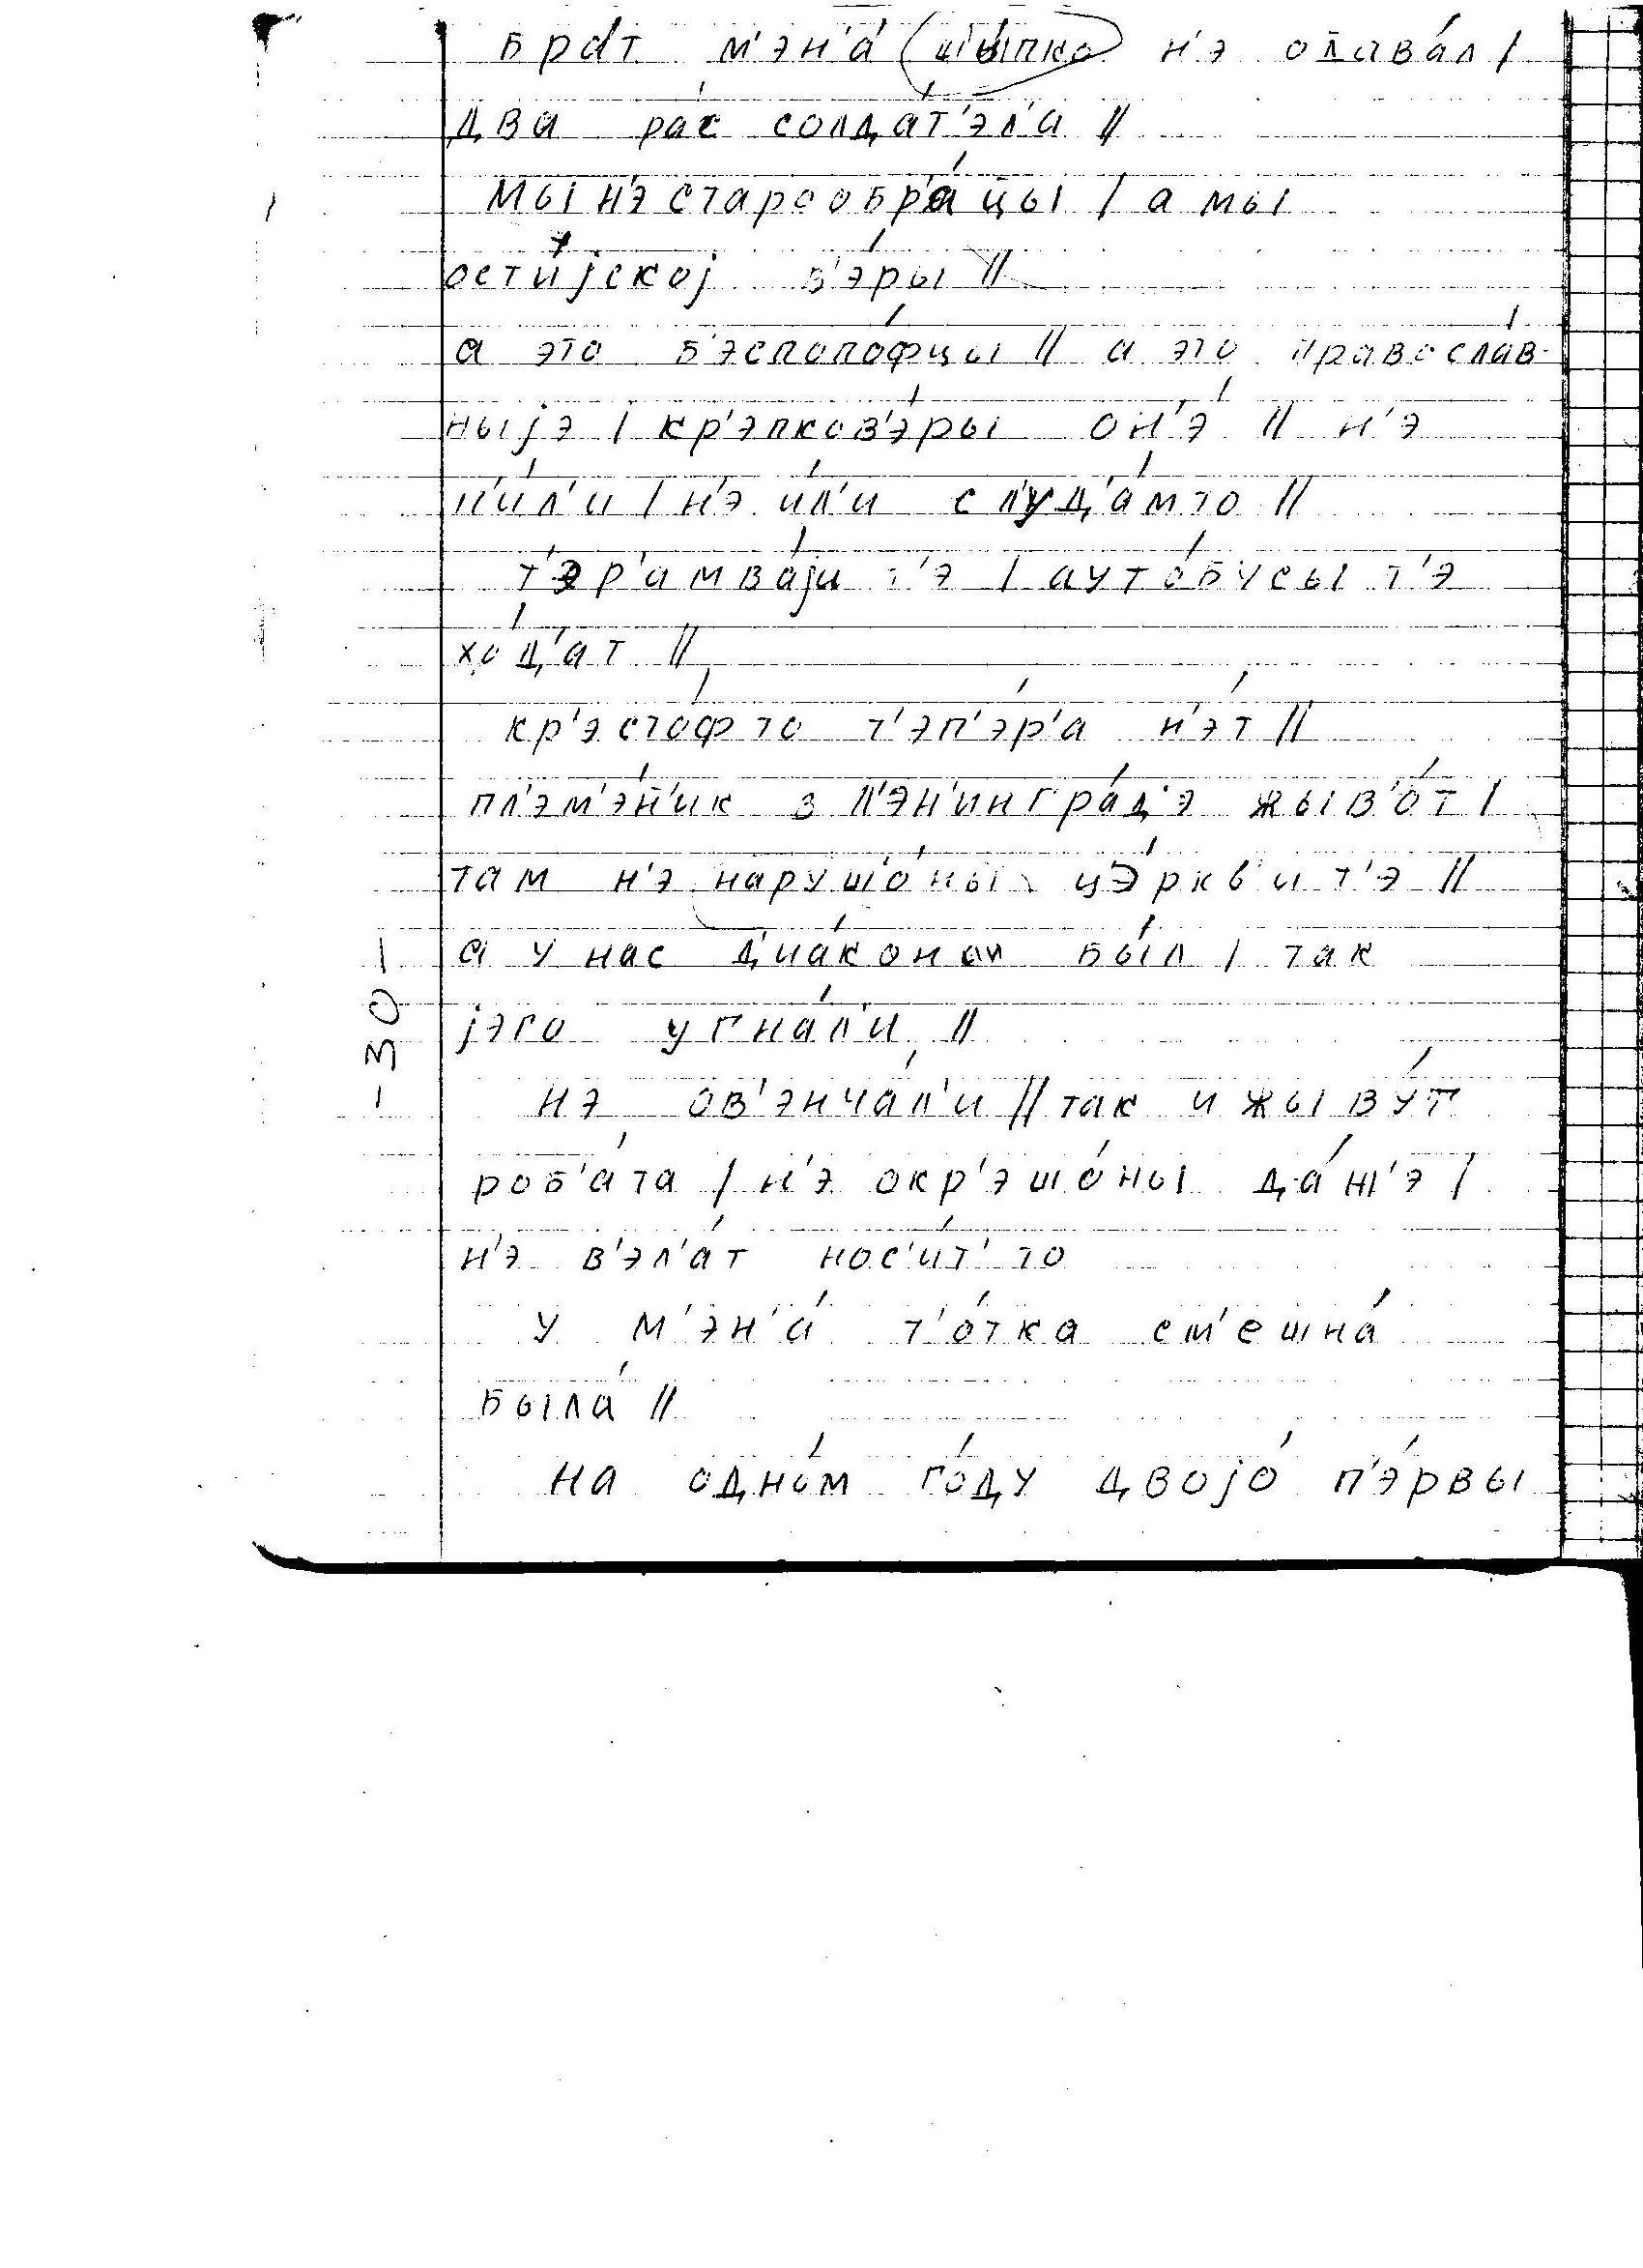 брат м'эн'а́ шы́пко н'э одава́л /
два ра́с солда́т'эл'а //
мы н'э старообр'а́цы / а мы
ости́jской в'э́ры //
а это б'эспопо́фцы // а это правосла́в-
ныjэ / кр'эпков'э́ры он'э́ // н'э
п'и́л'и / н'э и́л'и с л'уд'а́м то //
т'эр'амва́jи т'э / ауто́бусы т'э
хо́д'ат //
кр'эсто́ф то т'эп'э́р'а н'э́т //
пл'эм'э́н'ик в л'эн'ингра́д'э жыв'о́т /
там н'э нарушо́ны цэ́ркв'и т'э //
а у нас д'иа́кон бы́л / так
jэго угна́л'и //
н'э ов'энча́л'и // так и жыву́т
роб'а́та / н'э окр'эшо́ны да́ж'э /
н'э в'эл'а́т нос'и́т' то
у м'эн'а́ т'о́тка см'ешна́
была́ //
на одно́м го́ду двоjо́ п'э́рвы
- 30 -